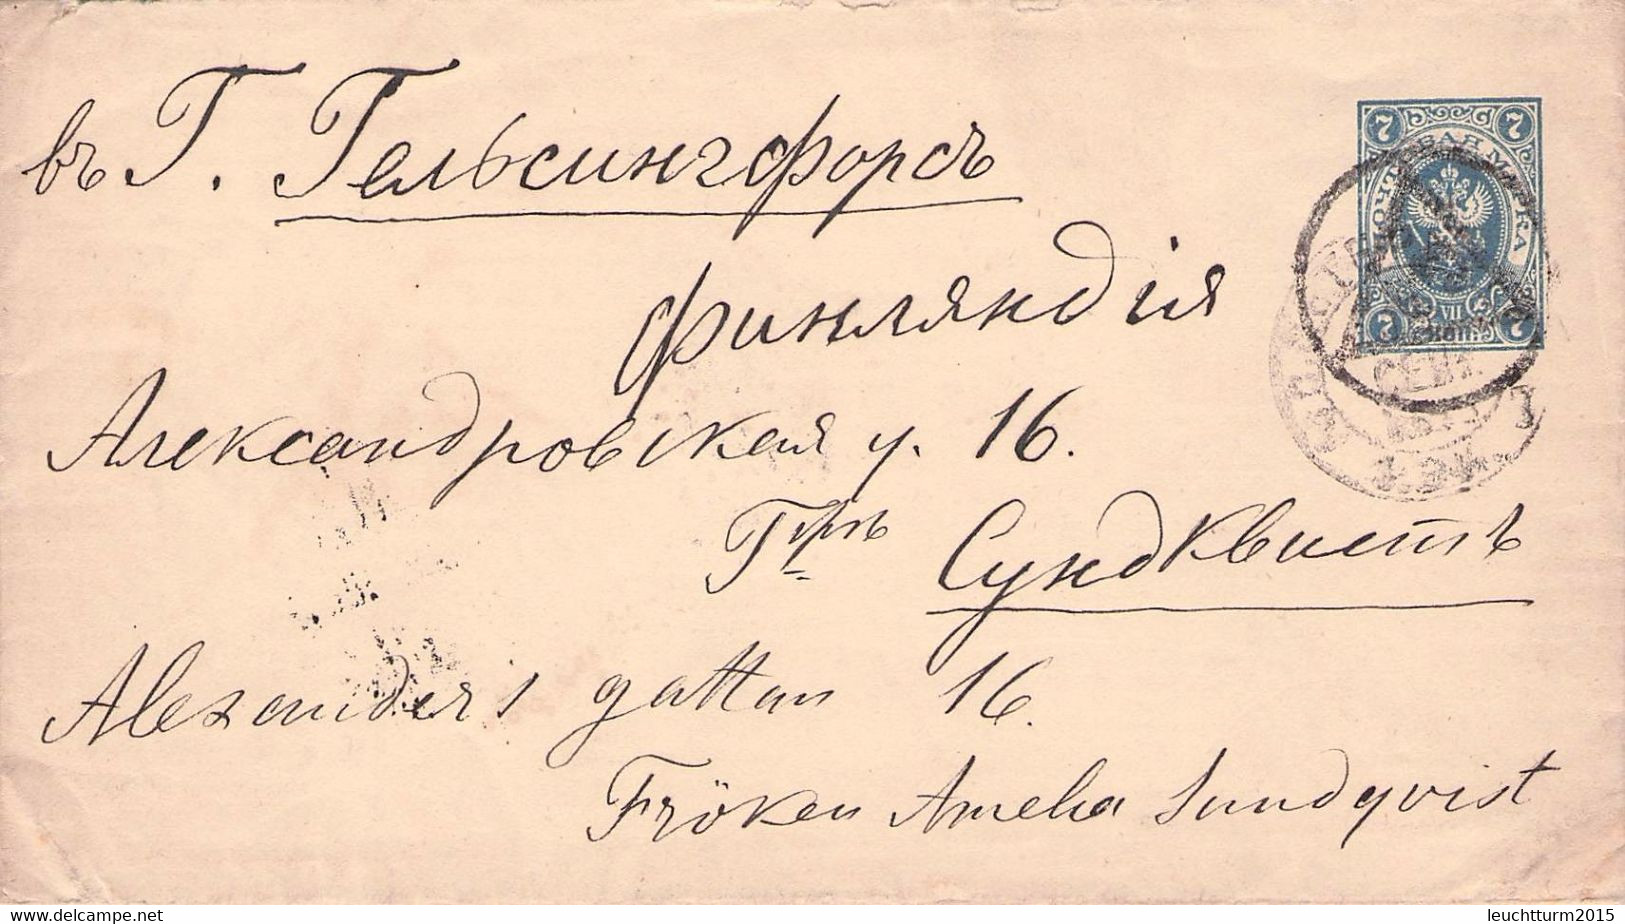 въ Г. Гельсингфорсъ
Финляндія
Александровская у. 16.
Сундквистъ
Alexanders gattan 16.
Fröken Amelia Sundqvist
7 7
ПОЧТОВАЯ МАРКА
7 VII 7
СЕН
leuchtturm2015
www.delcampe.net